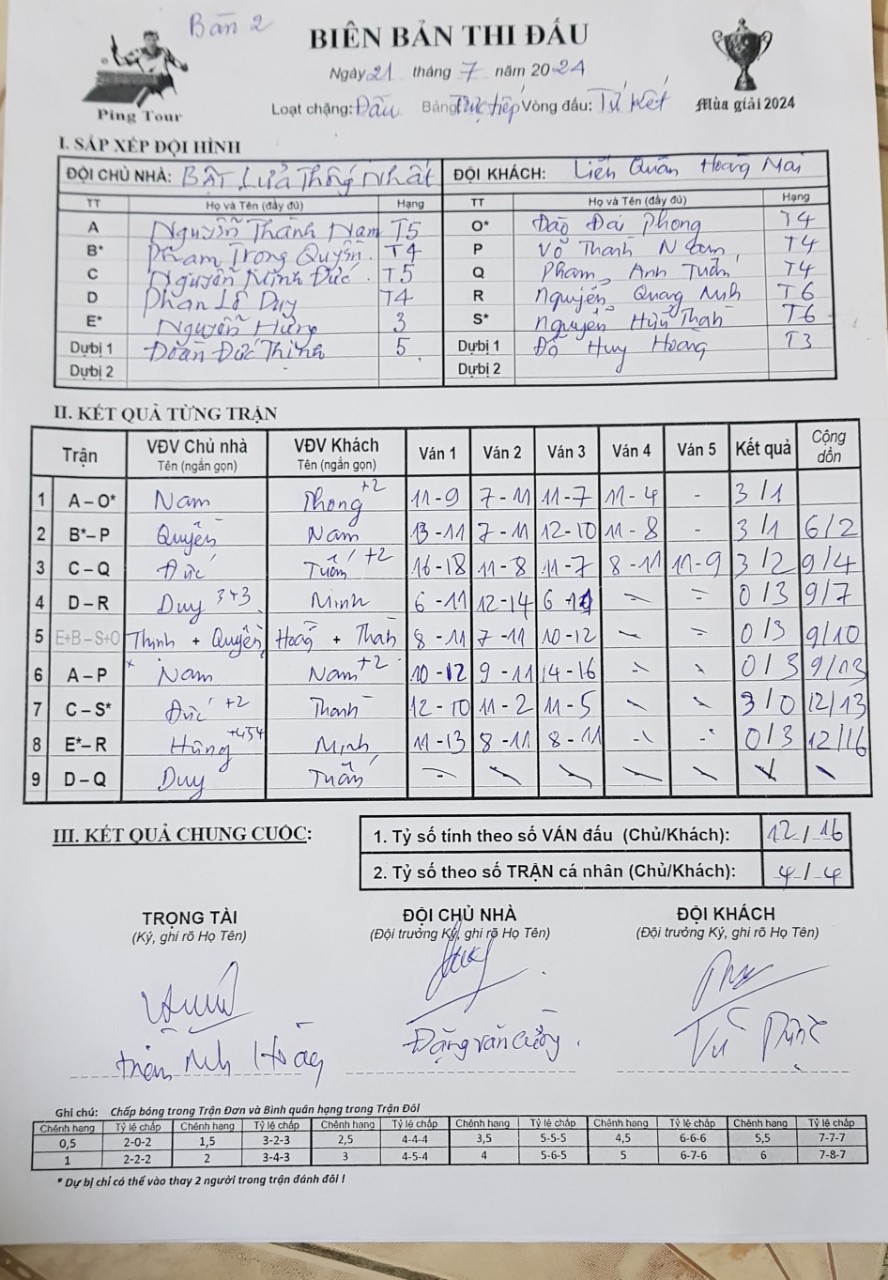 Bàn 2
BIÊN BẢN THI ĐẤU
Ngày 21 tháng 7 năm 2024
Ping Tour
Loạt chặng: Đấu Bảng: Trực tiếp Vòng đấu: Tứ kết
Mùa giải 2024
I. SẮP XẾP ĐỘI HÌNH
ĐỘI CHỦ NHÀ: BẬT Lửa Thống Nhất ĐỘI KHÁCH: Liên Quân Hoàng Mai
TT Họ và Tên (đầy đủ) Hạng TT Họ và Tên (đầy đủ) Hạng
A Nguyễn Thành Nam T5 O* Đào Đại Phong T4
B* Phạm Trọng Quyền T4 P Võ Thanh Nam T4
C Nguyễn Minh Đức T5 Q Phạm Anh Tuấn T4
D Phan Lê Duy T4 R Nguyễn Quang Minh T6
E* Nguyễn Hưng 3 S* Nguyễn Hữu Thanh T6
Dự bị 1 Đoàn Đức Thịnh 5 Dự bị 1 Đỗ Huy Hoàng T3
Dự bị 2 Dự bị 2
II. KẾT QUẢ TỪNG TRẬN
Trận VĐV Chủ nhà Tên (ngắn gọn) VĐV Khách Tên (ngắn gọn) Ván 1 Ván 2 Ván 3 Ván 4 Ván 5 Kết quả Cộng dồn
1 A – O* Nam Phong +2 11-9 7-11 11-7 11-4 - 3/1
2 B* – P Quyền Nam 13-11 7-11 12-10 11-8 - 3/1 6/2
3 C – Q Đức Tuấn +2 16-18 11-8 11-7 8-11 11-9 3/2 9/4
4 D – R Duy 3+3 Minh 6-11 12-14 6-11 - - 0/3 9/7
5 E+B – S+O Thịnh + Quyền Hoàng + Thanh 8-11 7-11 10-12 - - 0/3 9/10
6 A – P Nam Nam +2 10-12 9-11 14-16 - - 0/3 9/13
7 C – S* Đức +2 Thanh 12-10 11-2 11-5 - - 3/0 12/13
8 E* – R Hưng +454 Minh 11-13 8-11 8-11 - - 0/3 12/16
9 D – Q Duy Tuấn - - - - -
III. KẾT QUẢ CHUNG CUỘC:
1. Tỷ số tính theo số VÁN đấu (Chủ/Khách): 12/16
2. Tỷ số theo số TRẬN cá nhân (Chủ/Khách): 4/4
TRỌNG TÀI ĐỘI CHỦ NHÀ ĐỘI KHÁCH
(Ký, ghi rõ Họ Tên) (Đội trưởng Ký, ghi rõ Họ Tên) (Đội trưởng Ký, ghi rõ Họ Tên)
Trần Anh Hoàng Đặng Văn Cường.
Ghi chú: Chấp bóng trong Trận Đơn và Bình quân hạng trong Trận Đôi
Chênh hạng Tỷ lệ chấp Chênh hạng Tỷ lệ chấp Chênh hạng Tỷ lệ chấp Chênh hạng Tỷ lệ chấp Chênh hạng Tỷ lệ chấp Chênh hạng Tỷ lệ chấp
0,5 2-0-2 1,5 3-2-3 2,5 4-4-4 3,5 5-5-5 4,5 6-6-6 5,5 7-7-7
1 2-2-2 2 3-4-3 3 4-5-4 4 5-6-5 5 6-7-6 6 7-8-7
* Dự bị chỉ có thể vào thay 2 người trong trận đánh đôi !